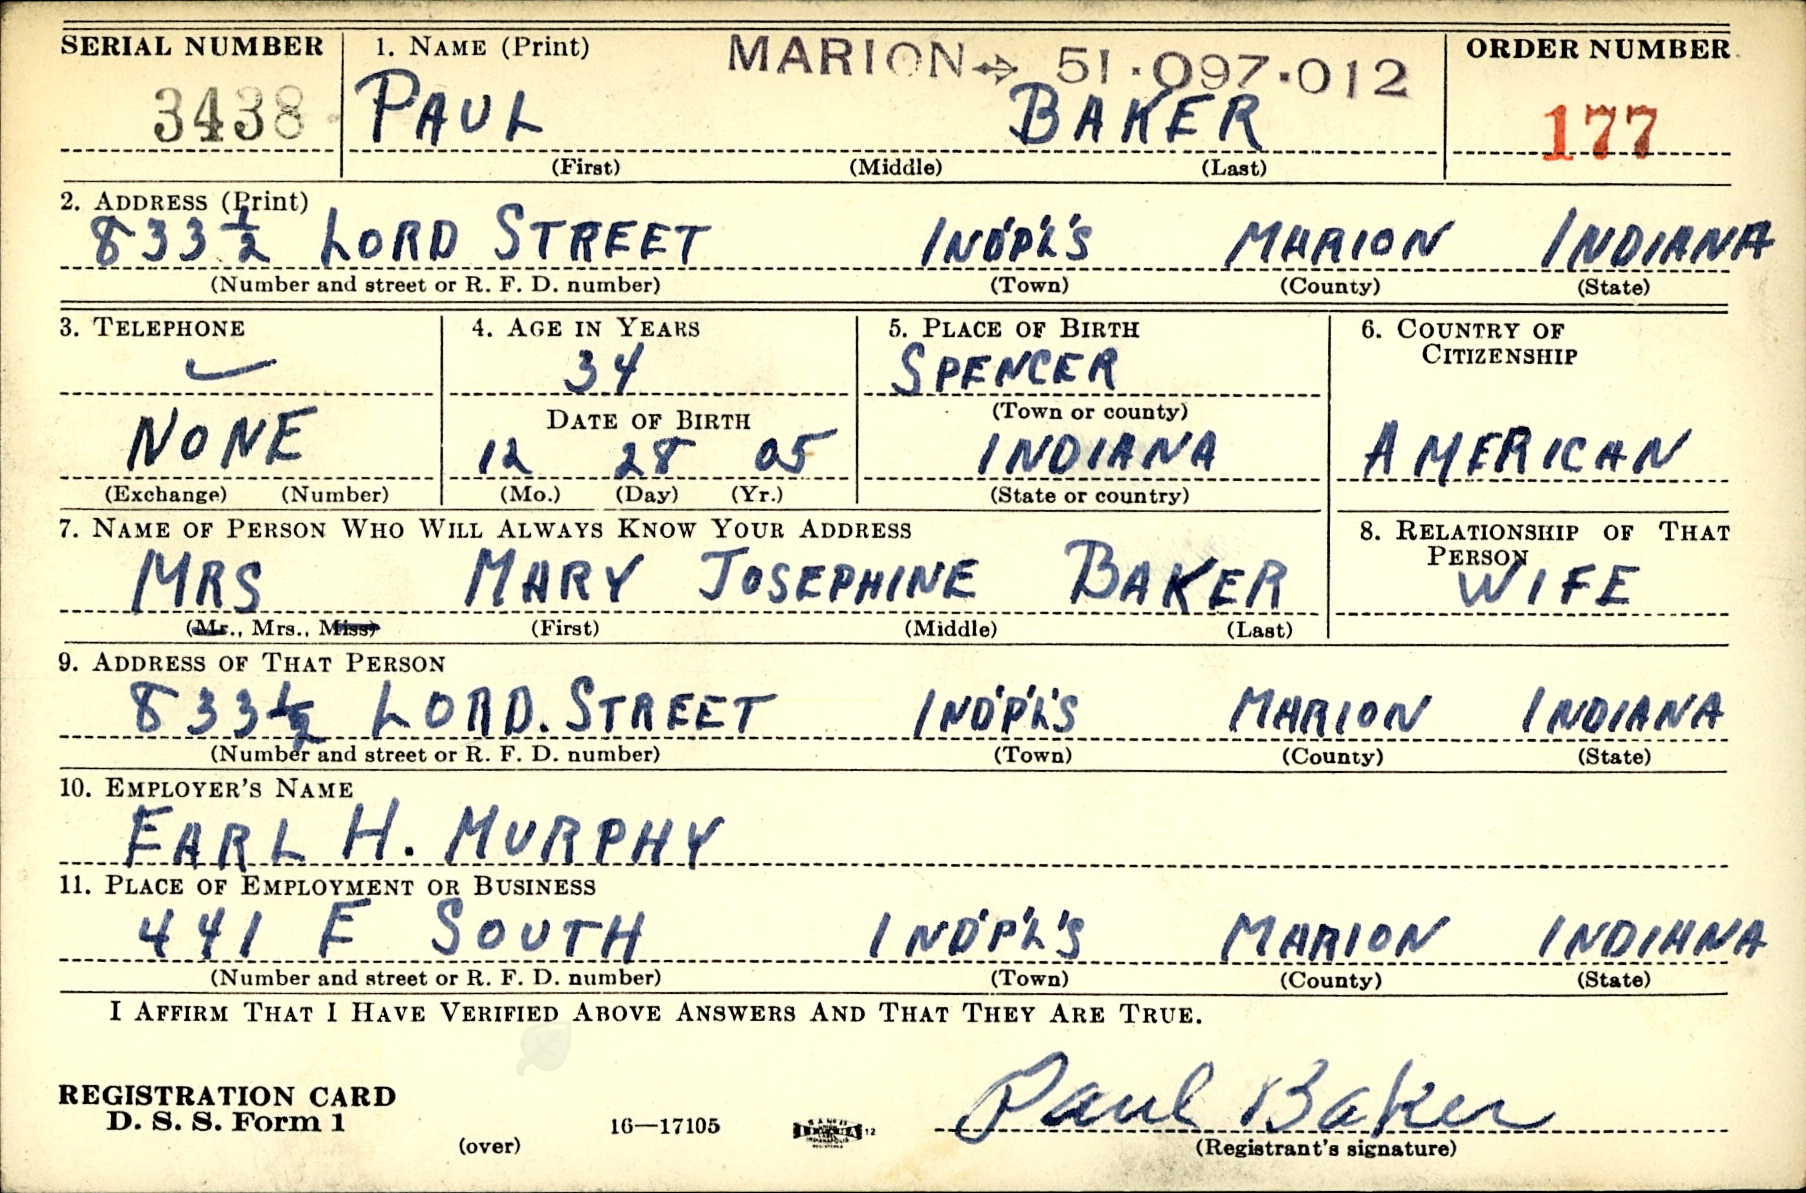 SERIAL NUMBER
1. NAME (Print)
MARION 51·097·012
ORDER NUMBER
3438
PAUL BAKER
177
(First) (Middle) (Last)
2. ADDRESS (Print)
833 1/2 LORD STREET IND'P'L'S MARION INDIANA
(Number and street or R. F. D. number) (Town) (County) (State)
3. TELEPHONE
NONE
(Exchange) (Number)
4. AGE IN YEARS
34
DATE OF BIRTH
12 28 05
(Mo.) (Day) (Yr.)
5. PLACE OF BIRTH
SPENCER
(Town or county)
INDIANA
(State or country)
6. COUNTRY OF
CITIZENSHIP
AMERICAN
7. NAME OF PERSON WHO WILL ALWAYS KNOW YOUR ADDRESS
MRS MARY JOSEPHINE BAKER
(Mr., Mrs., Miss) (First) (Middle) (Last)
8. RELATIONSHIP OF THAT
PERSON
WIFE
9. ADDRESS OF THAT PERSON
833 1/2 LORD. STREET IND'P'L'S MARION INDIANA
(Number and street or R. F. D. number) (Town) (County) (State)
10. EMPLOYER'S NAME
EARL H. MURPHY
11. PLACE OF EMPLOYMENT OR BUSINESS
441 E SOUTH IND'P'L'S MARION INDIANA
(Number and street or R. F. D. number) (Town) (County) (State)
I AFFIRM THAT I HAVE VERIFIED ABOVE ANSWERS AND THAT THEY ARE TRUE.
REGISTRATION CARD
D. S. S. Form 1
(over)
16—17105
12
Paul Baker
(Registrant's signature)